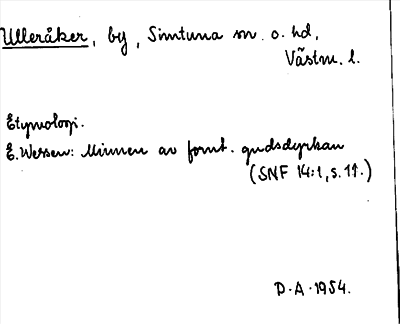 Ulleråker, by, Simtuna sn. o. hd,
Västm. l.
Etymologi.
E. Wessen: Minnen av fornt. gudsdyrkan
(SNF 14:1, s. 11.)
D. A. 1954.